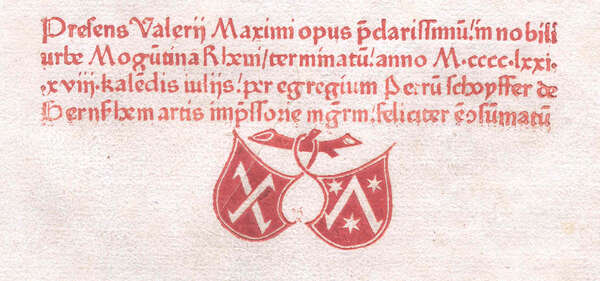 Presens Valerij Maximi opus p̄clarissimū/ in nobili
urbe Mogūtina Rheni/ terminatū/ anno M.cccc.lxxi.
.xviij.kalēdis iulijs/ per egregium Petrū schoyffer de
Gernsshem artis imp̄ssorie mgr̄m/ feliciter ē ꝯsūmatū